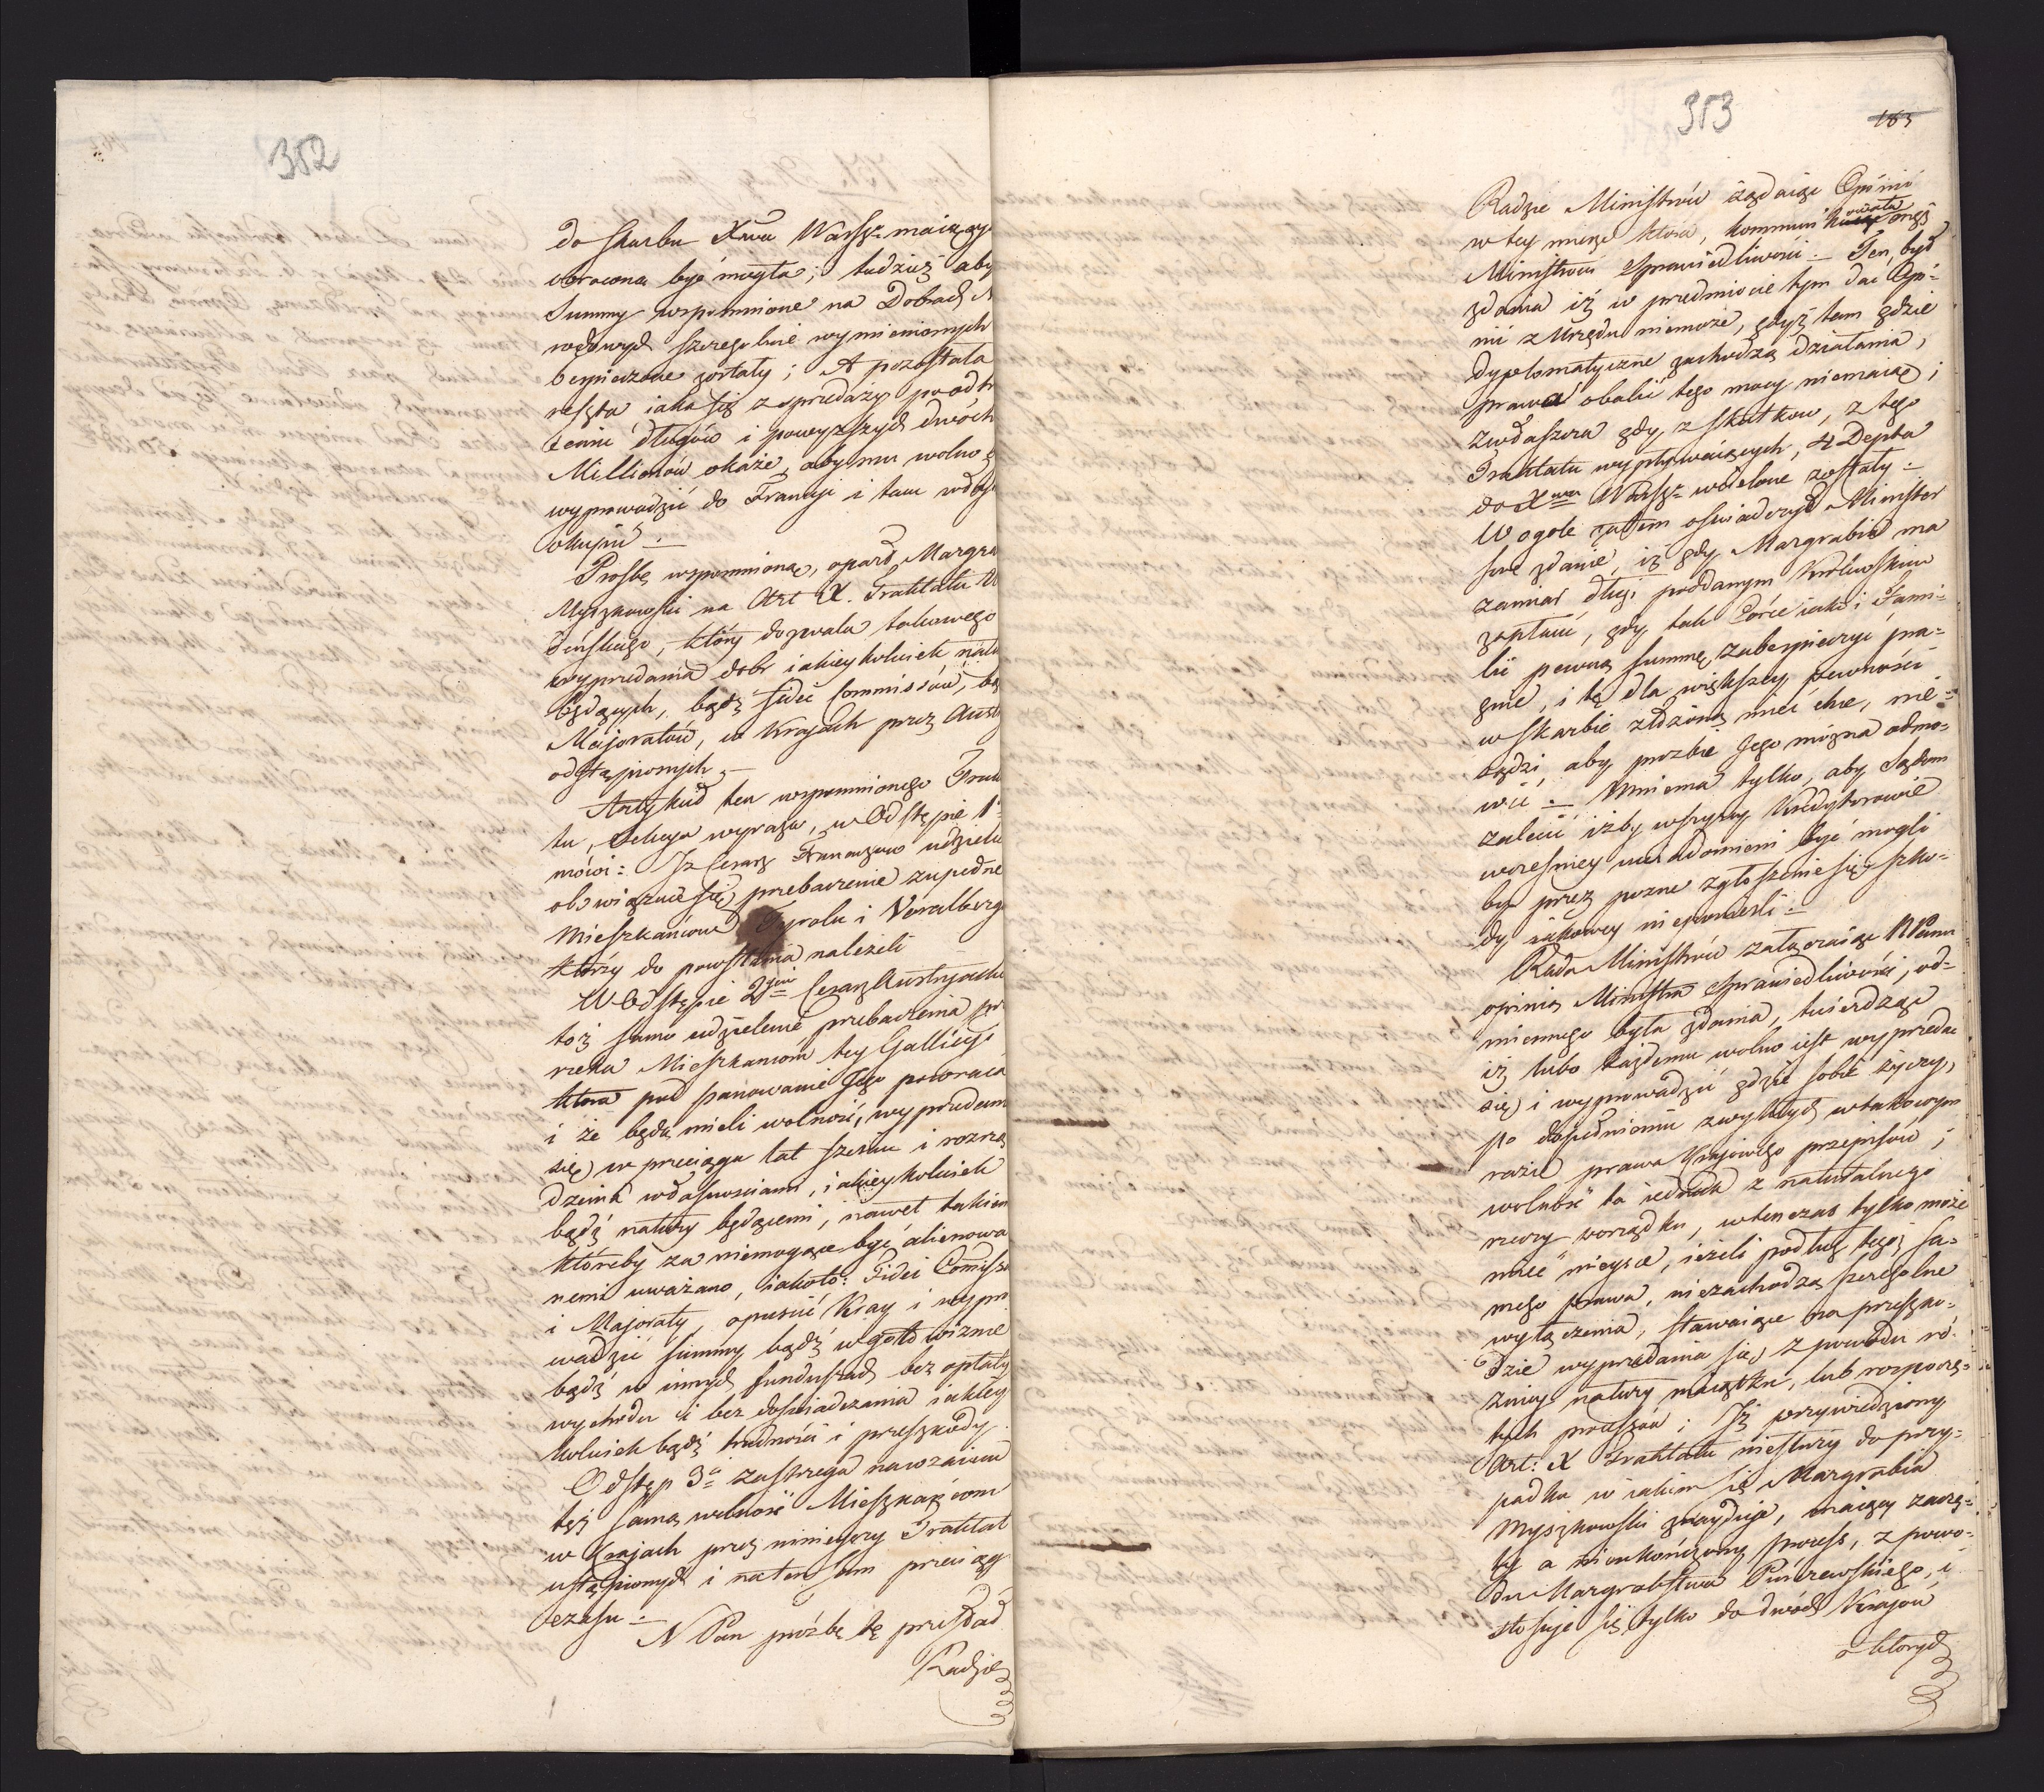 352
do Skarbu Xwa Warsz: maiący
wrocona być mogła; tudzież aby
Summy wspomnione na Dobrach
szczegulnie wymienionych
bespieczone zostały; A pozostała
reszta iaka się z sprzedaży po odtr
ceniu długów i powyzszych dwóch
Millionów okaże, aby mu wolno
wyprowadzić do Francyi i tam
okupić.
Prosbę wspomnioną, oparł Margra
Myszkowski na Art X. Traktatu
deńskiego, który dozwala takowego
wyprzedania dobr iakieykolwiek natu
będących, bądź fidei Commissów, bą
Majoratów, w Krajach przez Aust
odstąpionych.
Artykuł ten wspomnionego Trak
tu, w Odstępie 1°
mówi: Iż Cesarz Francuzow
obowiązuie się przebaczenie zupełne
Mieszkańcow Tyrolu i Voralberg
którzy do powstania należeli
W Odstępie 2gim Cesarz Austryacki
toż samo udzielenie przebaczenia
rzeka Mieszkancom tey Gallicyi
ktora pod panowanie Jego powraca
i że będą mieli wolność, wyprzedani
się w przeciągu lat szesciu i rozrzą
dzenia własnosciami, iakieykolwiek
bądź natury będącemi, nawet takiem
któreby za niemogące być alienowa
nemi uważano, iakoto: Fidei Comiss
i Majoraty, opuścić Kray i wypro
wadzić summy, bądź w gotowiznie
bądź w innych funduszach bez opłaty
wychodu i bez doświadczania iakiey
kolwiek bądź trudności i przeszkody.
Odstęp 3ci zastrzega nawzaiem
tęż samą wolność Mieszkańcom
w Krajach przez niniejszy Traktat
ustąpionych i na ten sam przeciąg
czasu.
N Pan prózbę tę przesłał
Radzie
353
183
Radzie Ministrów żądaiąc Opinii
w tey mierze ktora, kommunikowała onęż
Ministrowi Sprawiedliwości. Ten, był
zdania iż w przedmiocie tym dac Opi=
nii z Urzędu niemoże, gdyż tam gdzie
dyplomatyczne zachodzą działania,
prawa obalić tego mocy niemaią;
Zwłaszcza gdy, z skutkow, z tego
Traktatu wypływaiących, 4 Depta
do Xwa Warsz: wcielone zostały.
W ogole zatem oswiadczył Minister
swe zdanie, iż gdy Margrabia ma
zamiar długi poddanym Królewskim
zapłacić, gdy tak Córce iako i Fami=
lii pewną summę zabespieczyć pra=
gnie, i tę dla większey pewności
w skarbie złożoną mieć chce, nie=
sądzi, aby prozbie Jego można odmo=
wić. Mniema tylko, aby Sądom
zalecić iżby wszyscy Kredytorowie
wcześniey uwiadomieni być mogli
by przez pozne zgłoszenie się szko=
dy iakowey nieponiesli.
Rada Ministrów załączaiąc NPanu
opinię Ministra Sprawiedliwości, od=
miennego była zdania, twierdząc
iż lubo każdemu wolno iest wyprzedać
się i wyprowadzić gdzie sobie życzy,
po dopełnieniu zwykłych w takowym
razie prawa Krajowego przepisów;
wolność ta iednak z naturalnego
rzeczy porządku, wtenczas tylko może
mieć mieysce, ieżeli podług tegoż sa=
mego Prawa, niezachodzą szczegolne
wyłączenia, stawaiące na przeszko=
dzie wyprzedania się z powodu ró=
żney natury maiątku, lub rozpoczę=
tych processów; Iż przywiedziony
Art: X Traktatu niesłuży do przy=
padku w iakim się Margrabia
Myszkowski znayduie, maiący zaczę=
ty a nieukończony process, z powo=
du Margrabstwa Pinczewskiego, i
stosuje się tylko do dwóch Krajów
z ktorych